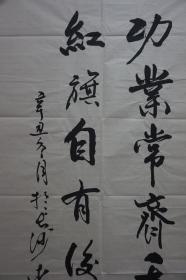 功業常齊天
紅旗自有後
辛丑冬月於長沙